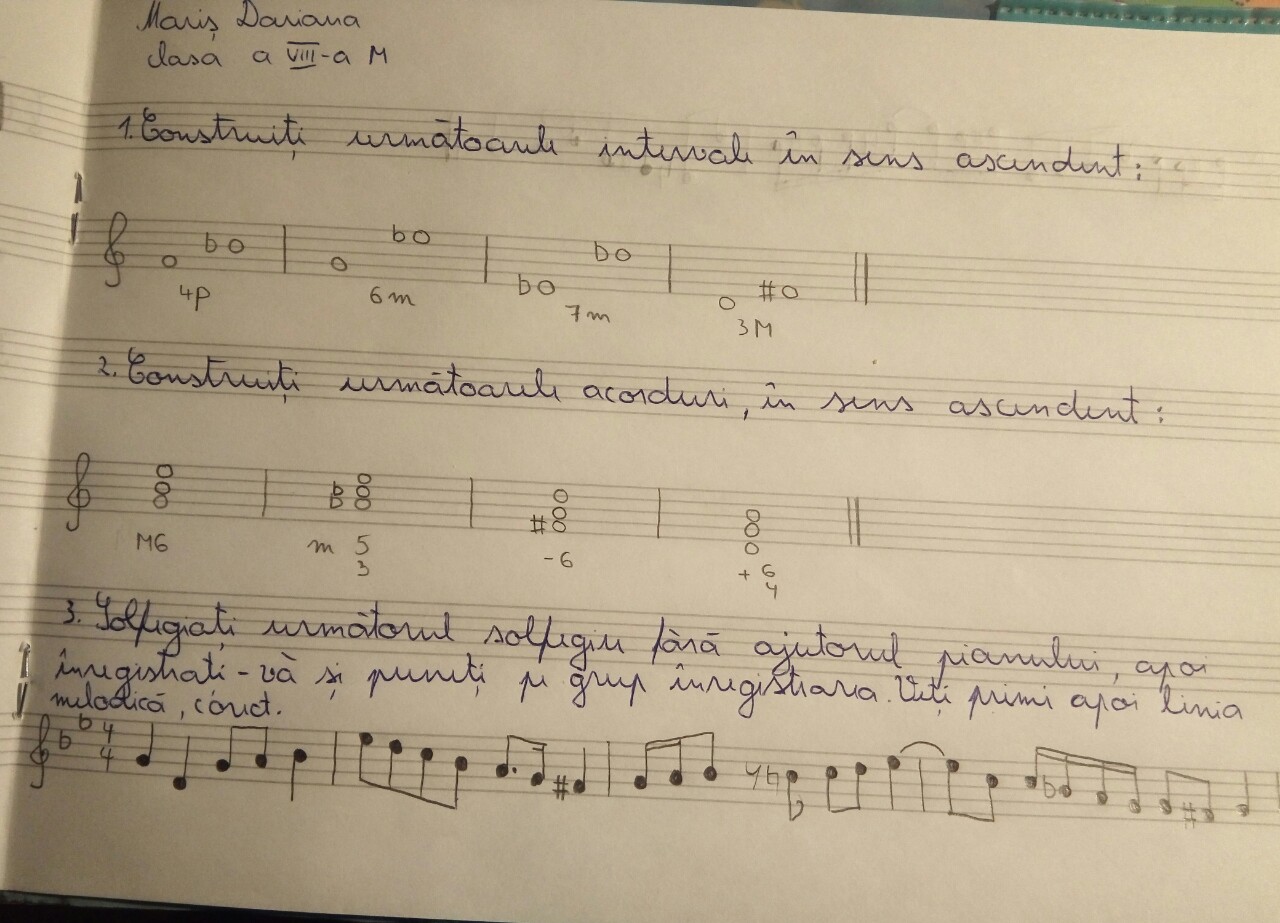 Mariș Dariana
clasa a VIII-a M
1. Construiți următoarele intervale în sens ascendent:
4p 6m 7m 3M
2. Construiți următoarele acorduri, în sens ascendent:
M6 m 5 -6 + 6
3 4
3. Solfegiați următorul solfegiu fără ajutorul pianului, apoi
înregistrati-vă și puneți pe grup înregistrarea. Veți primi apoi linia
melodică, corect.
4
4